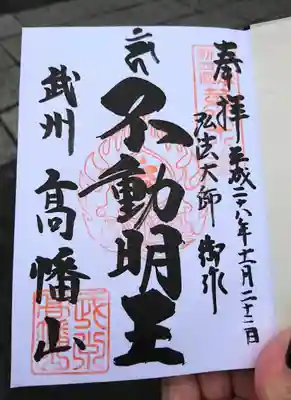 奉拝
平成二八年十一月二十二日
弘法大師 御作
不動明王
武州 高幡山